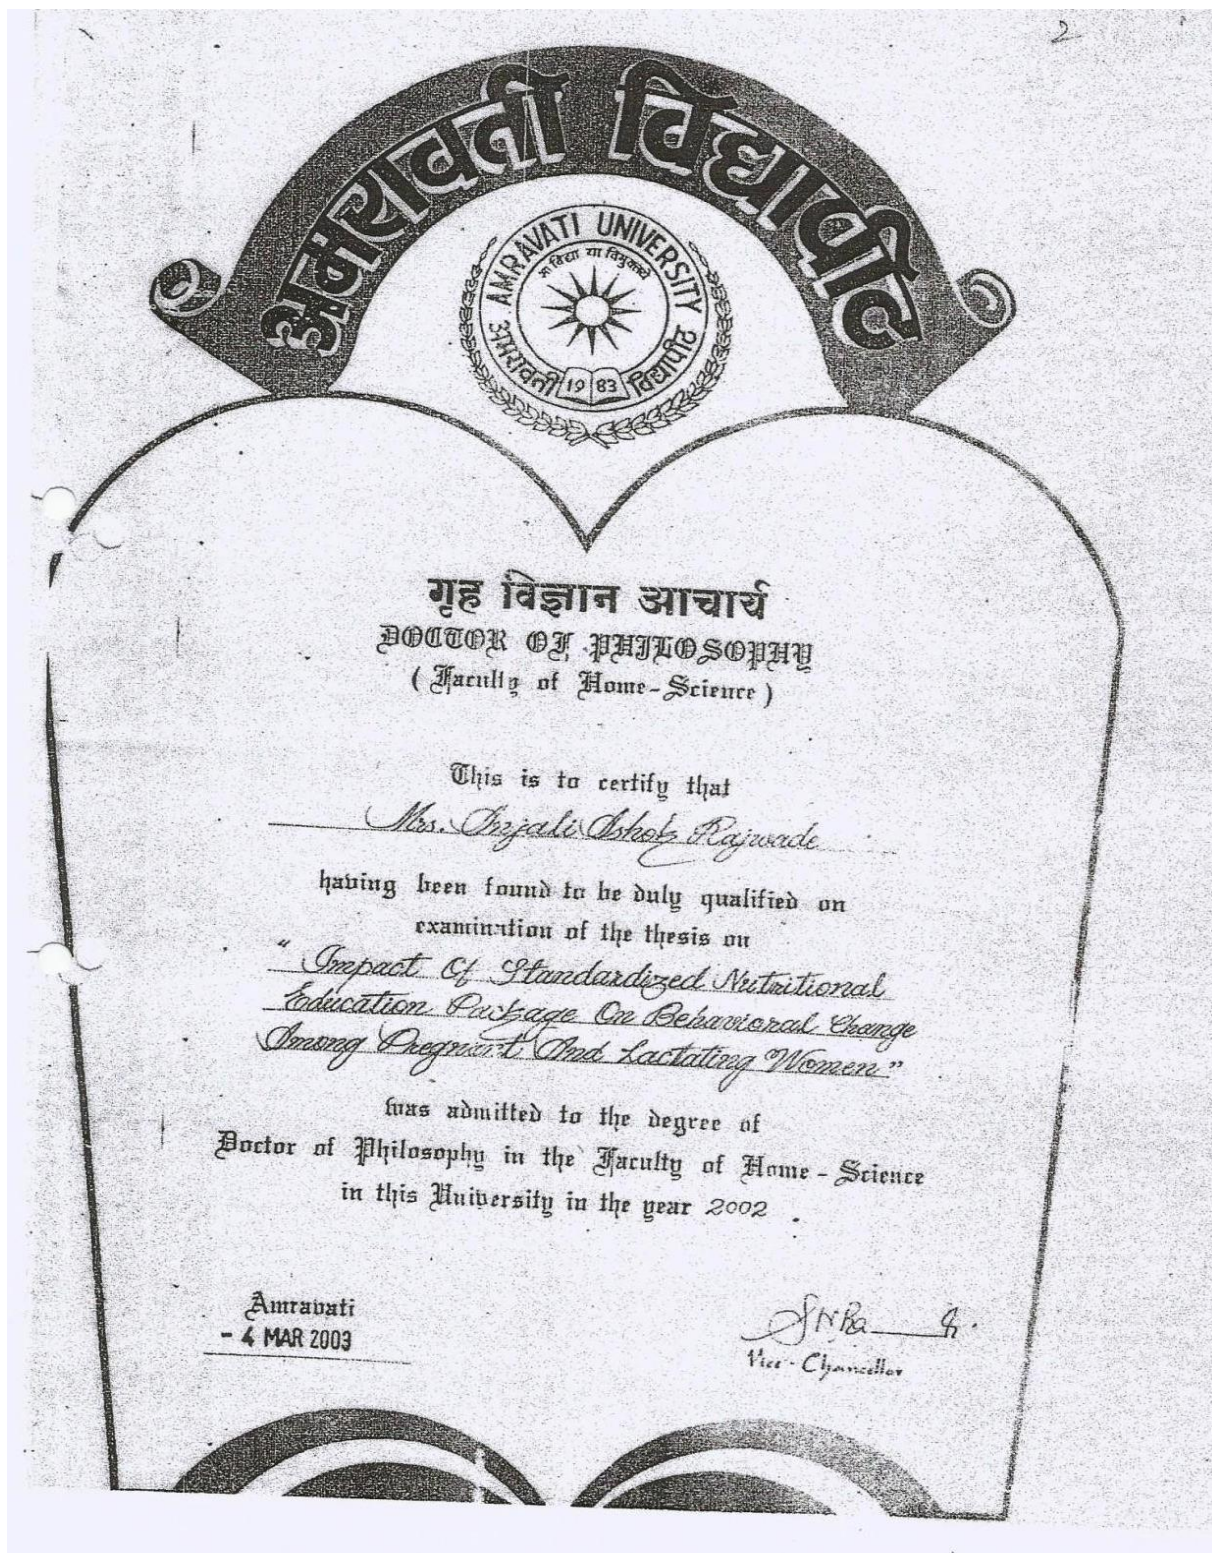 2
अमरावती विद्यापीठ
AMRAVATI UNIVERSITY
सा विद्या या विमुक्तये
अमरावती 1983 विद्यापीठ
गृह विज्ञान आचार्य
DOCTOR OF PHILOSOPHY
( Faculty of Home-Science )
This is to certify that
Mrs. Anjali Ashok Rajwade
having been found to be duly qualified on
examination of the thesis on
" Impact Of Standardized Nutritional
Education Package On Behavioral Change
Among Pregnant And Lactating Women"
was admitted to the degree of
Doctor of Philosophy in the Faculty of Home - Science
in this University in the year 2002 .
Amravati
- 4 MAR 2003
Vice - Chancellor